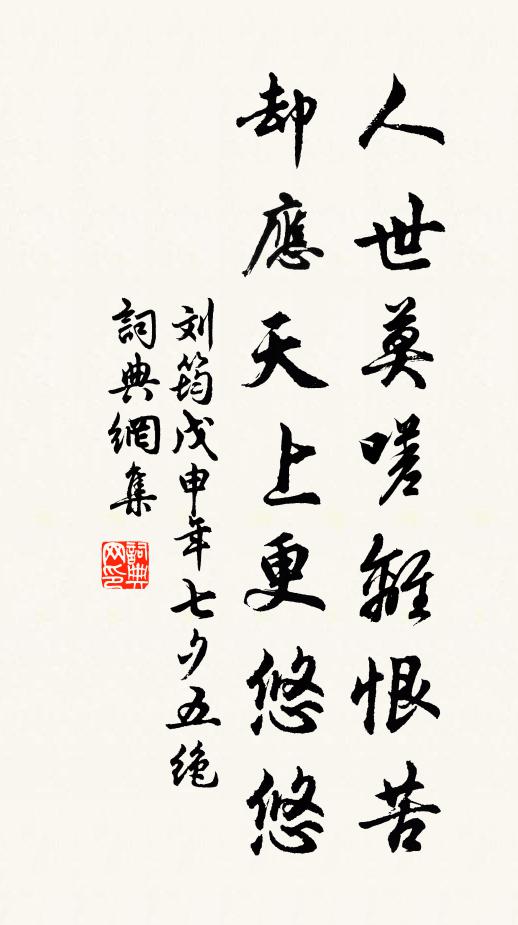 人世莫嗟離恨苦
却應天上更悠悠
刘筠戊申年七夕五绝
詞典網集
詞典网印